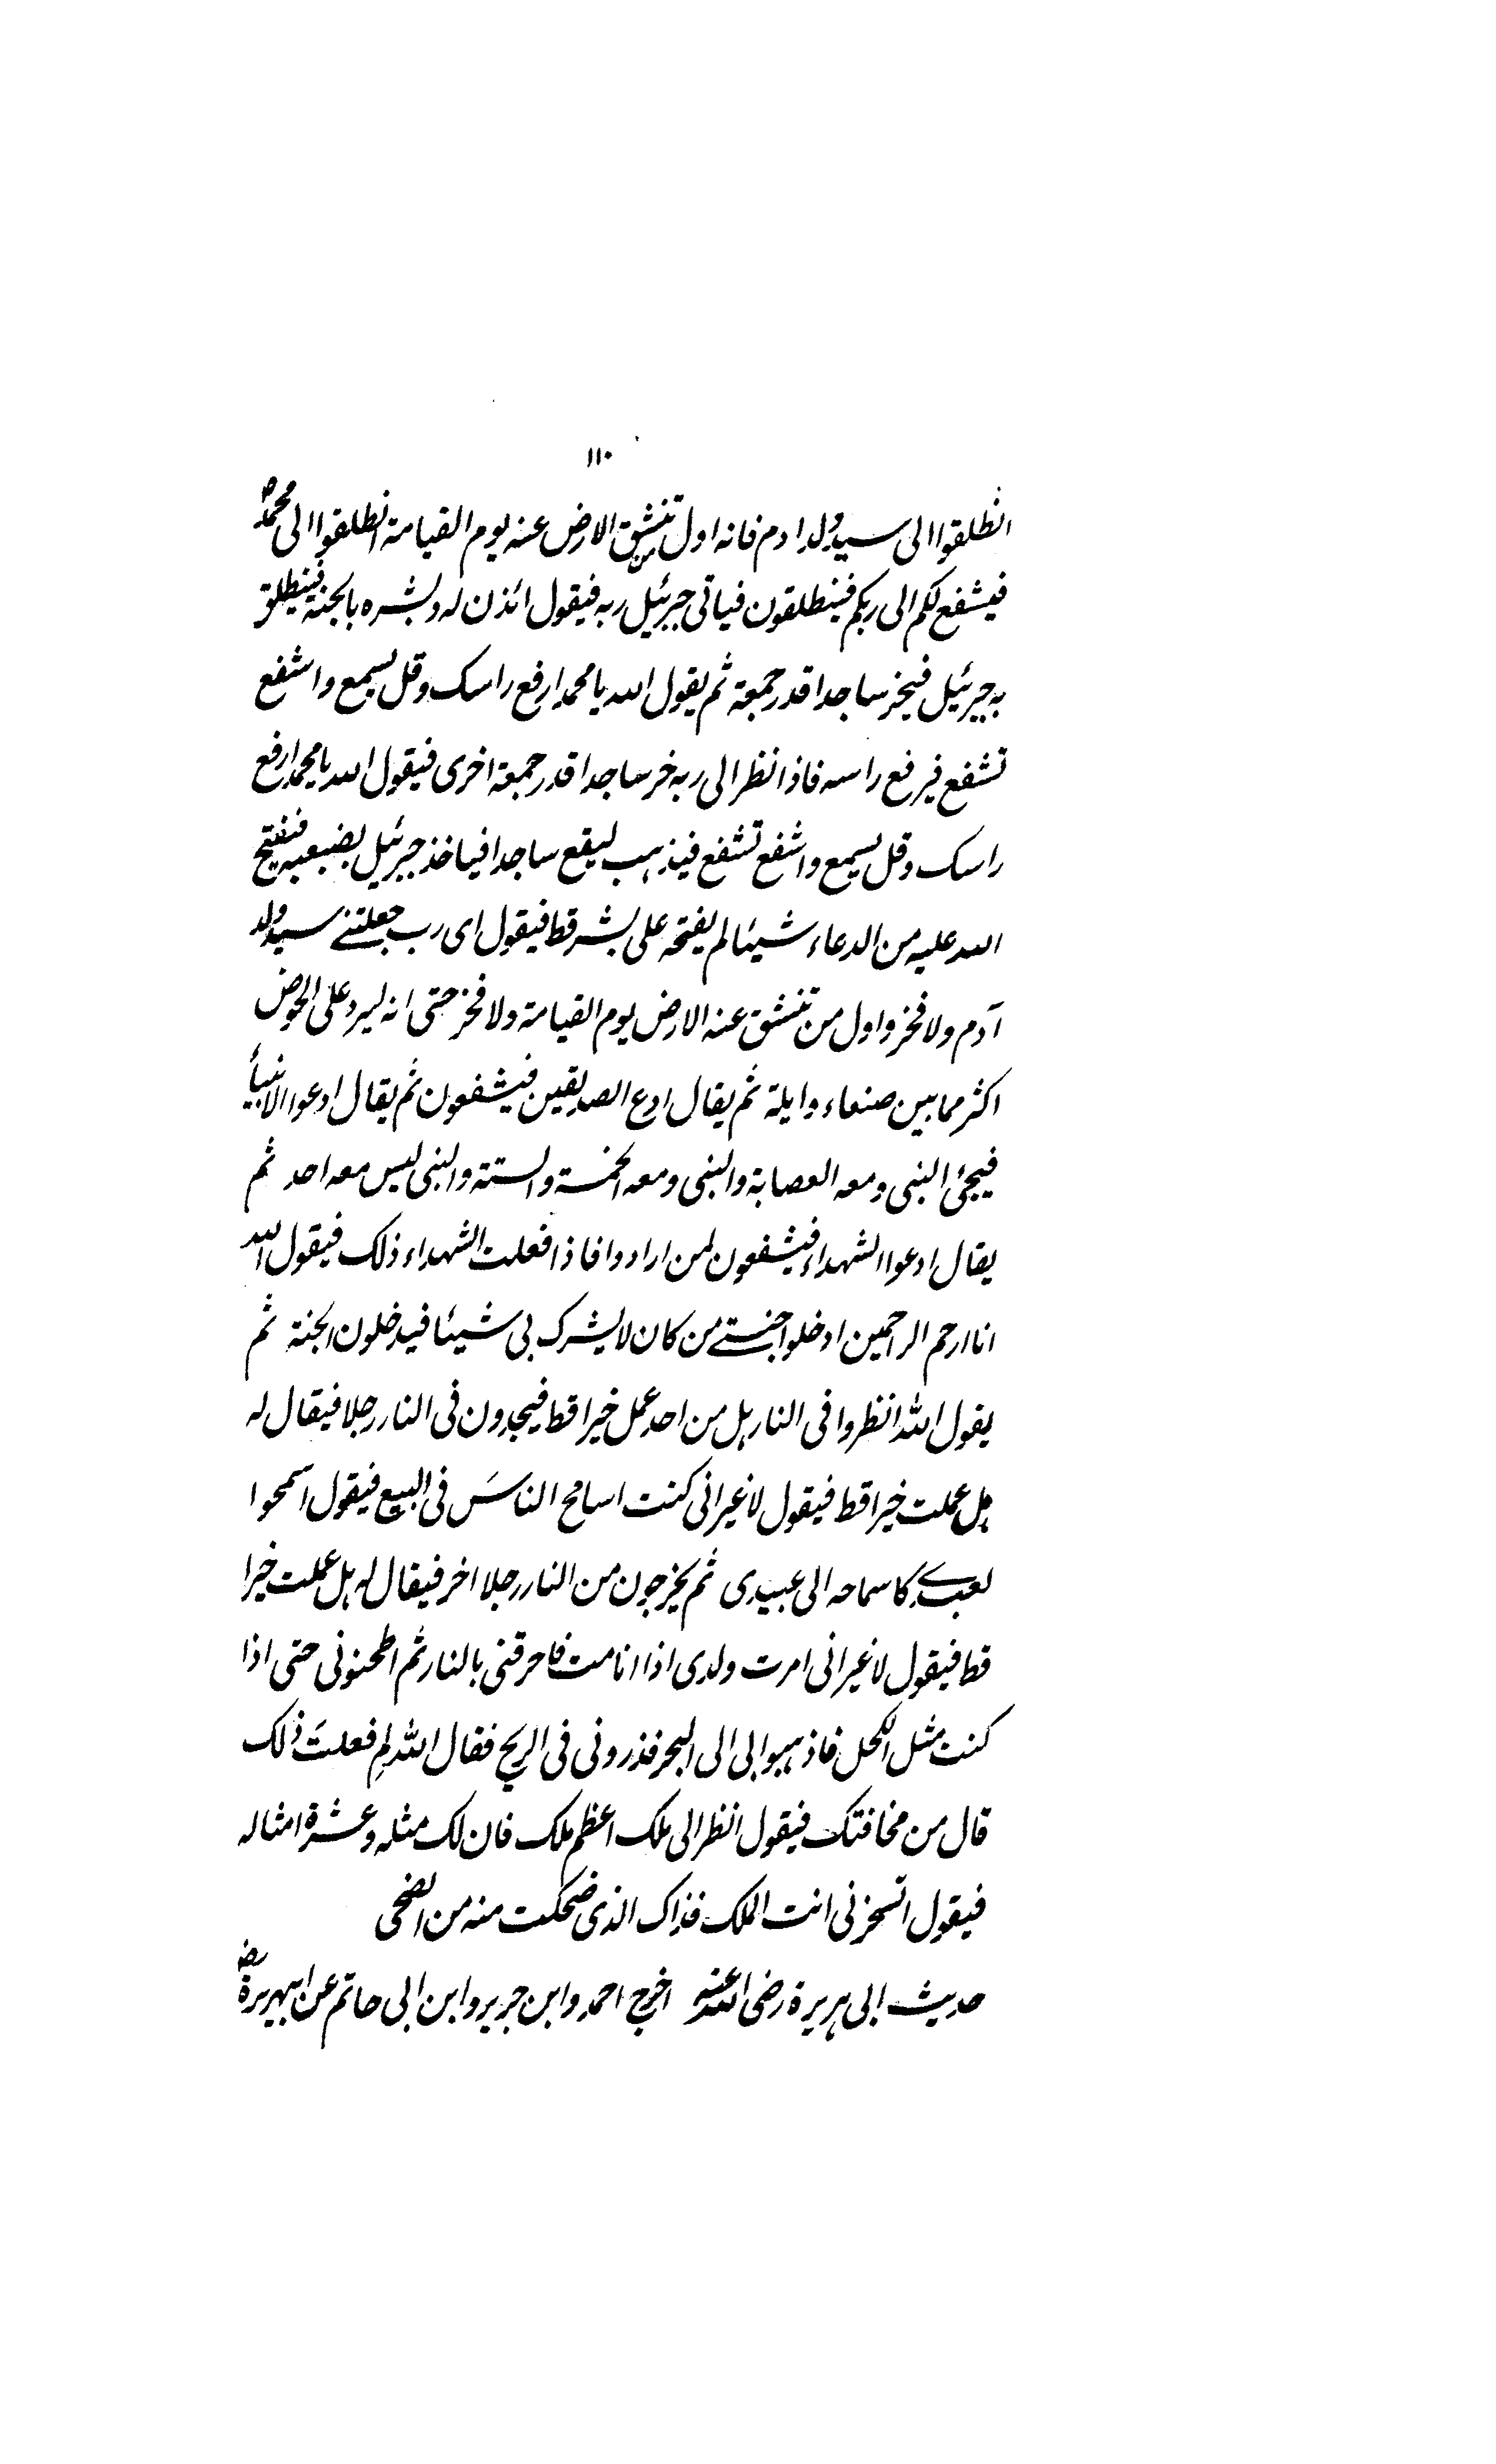 ١١٠
انطلقوا الى سيد ولد ادم فانه اول من تنشق الارض عنه يوم القيامة انطلقوا الى محمدؐ
فيشفع لكم الى ربكم فينطلقون فياتى جبرئيل ربه فيقول ائذن له وبشره بالجنة فينطلق
به جبرئيل فيخر ساجدا قدر جمعة ثم يقول الله يا محمد ارفع راسك وقل يسمع واشفع
تشفع فيرفع راسه فاذا نظر الى ربه خر ساجدا قدر جمعة اخرى فيقول الله يا محمد ارفع
راسك وقل يسمع واشفع تشفع فيذهب ليقع ساجدا فياخذ جبرئيل بضبعيه فيفتح
الله عليه من الدعاء شيئا لم يفتحه على بشر قط فيقول اى رب جعلتنے سيد ولد
آدم ولا فخر واول من تنشق عنه الارض يوم القيامة ولا فخر حتى انه ليرد على الحوض
اكثر مما بين صنعاء وايلة ثم يقال ادع الصديقين فيشفعون ثم يقال ادعوا الانبيأ
فيجئ النبى ومعه العصابة والنبى ومعه الخمسة والستة والنبى ليس معه احد ثم
يقال ادعوا الشهداء فيشفعون لمن ارادوا فاذا فعلت الشهداء ذلك فيقول الله
انا ارحم الراحمين ادخلوا جنتے من كان لا يشرك بى شيئا فيدخلون الجنة ثم
يقول الله انظروا فى النار هل من احد عمل خيرا قط فيجدون فى النار رجلا فيقال له
هل عملت خيرا قط فيقول لا غير انى كنت اسامح الناسَ فى البيع فيقول اسمحوا
لعبدے كاسماحه الى عبيدى ثم يخرجون من النار رجلا اخر فيقال له هل عملت خيرا
قط فيقول لا غير انى امرت ولدى اذا انا مت فاحرقنى بالنار ثم اطحنونى حتى اذا
كنت مثل الكحل فاذهبوا بى الى البحر فذرونى فى الريح فقال الله لِم فعلتَ ذلك
قال من مخافتك فيقول انظر الى ملك اعظم ملك فان لك مثله وعشرة امثاله
فيقول اتسخر نى انت الملك فذاك الذى ضحكت منه من الضحى
حديث ابى هريرة رضى الله عنه اخرج احمد وابن جرير وابن ابى حاتم عن ابيهريرة رضؓ